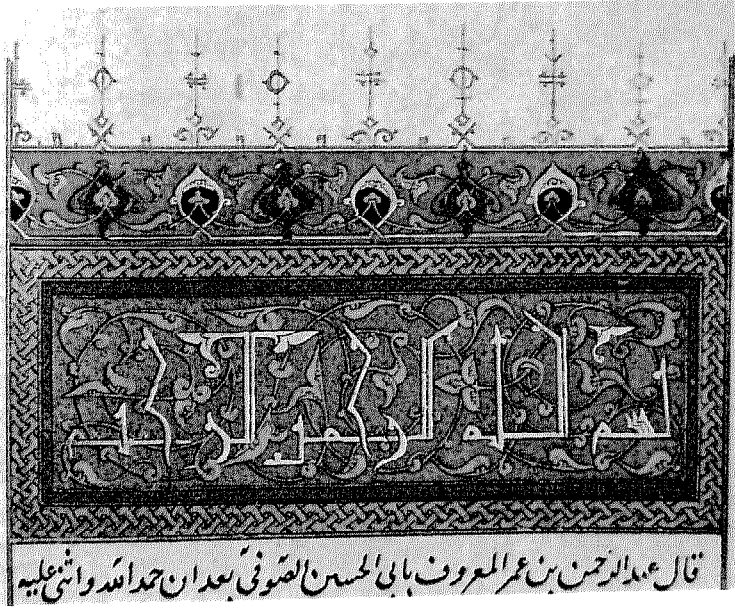 بسم الله الرحمن الرحيم
قال عبد الرحمن بن عمر المعروف بابى الحسين الصوفى بعد ان حمد الله واثنى عليه